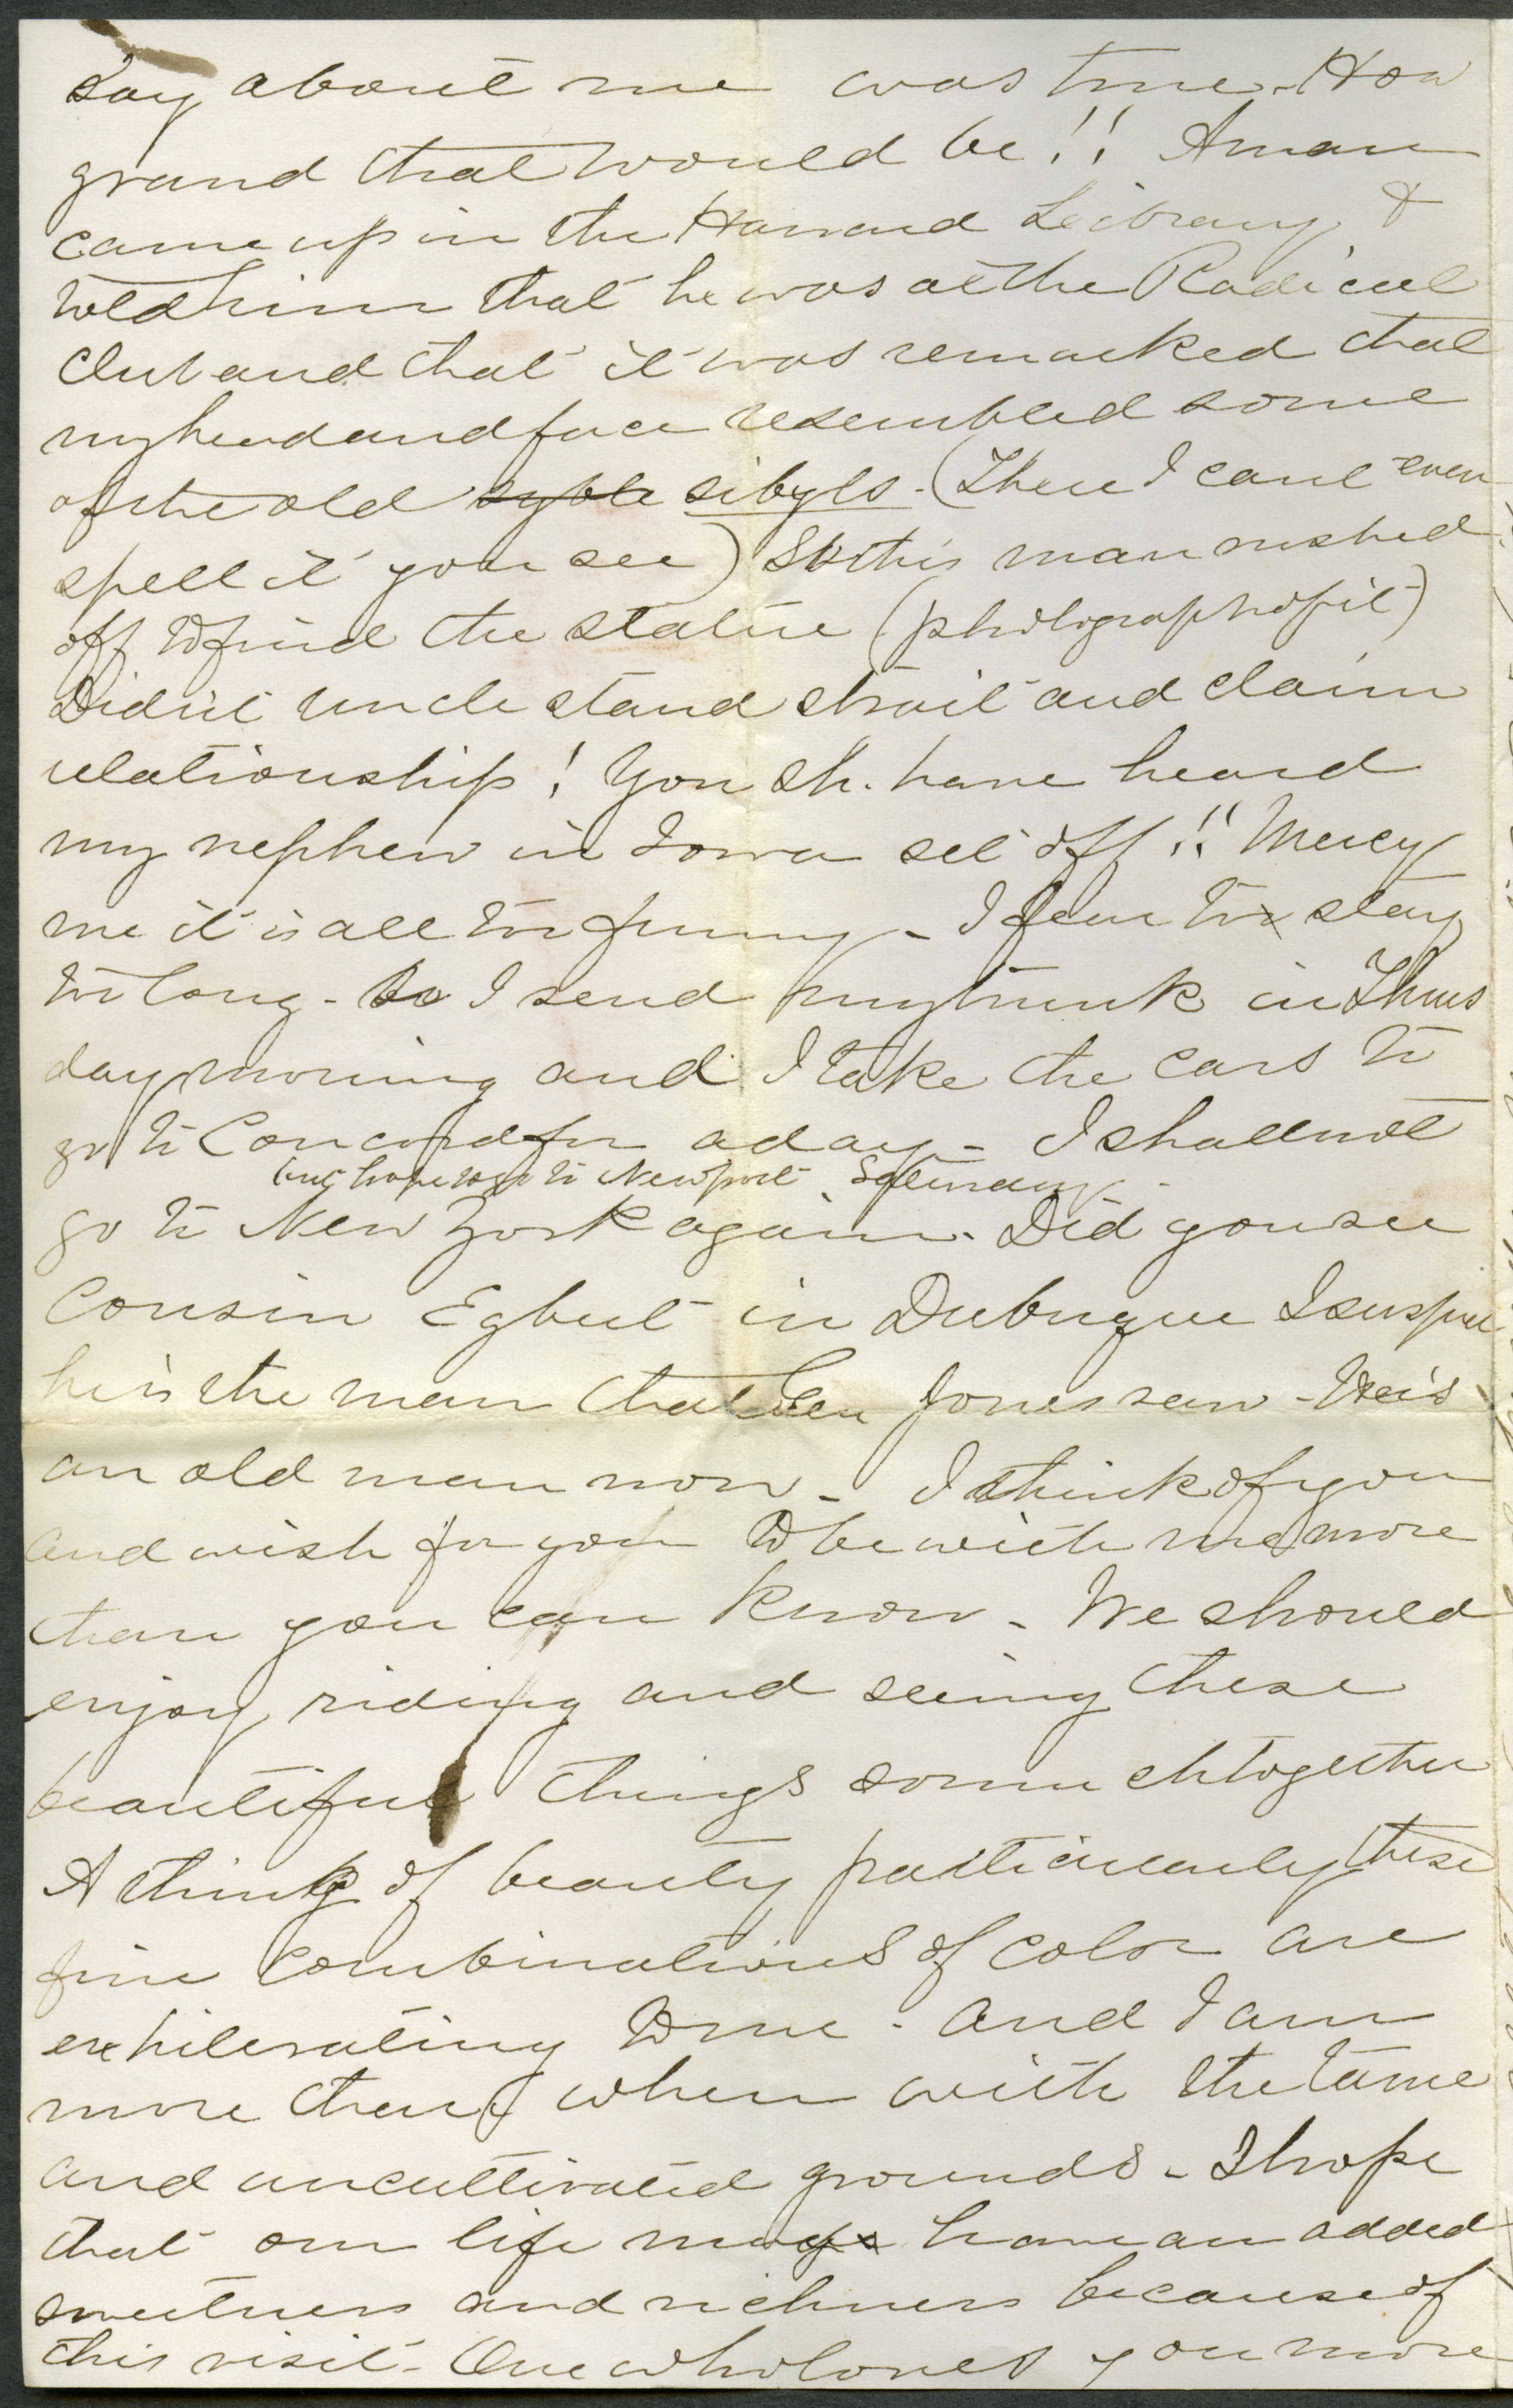 say about me was true. How
grand that would be!! A man
came up in the Harvard Library &
told him that he was at the Radical
Club and that it was remarked that
my head and face resembled some
of the old syble sibyls. (There I cant even
spell it you see) So this man rushed
off to find the statue (photograph of it)
Didn't uncle stand strait and claim
relationship! You sh. have heard
my nephew in Iowa set off!! Mercy
me it is all too funny - I fear to stay
too long - so I send my trunk in Thurs
day morning and I take the cars to
go to Concord for a day - I shall not
but hope to go to Newport Saturday -
go to New York again. Did you see
Cousin Egbert in Dubuque I suspect
he is the man that Gen Jones saw - He is
an old man now - I think of you
and wish for you to be with me more
than you can know - We should
enjoy riding and seeing these
beautiful things so much together
A thing of beauty particularly these
fine combinations of color are
exhilerating to me - and I am
more than when with the tame
and uncultivated grounds - I hope
that our life may have an added
sweetness and richness because of
this visit - One who loves you more